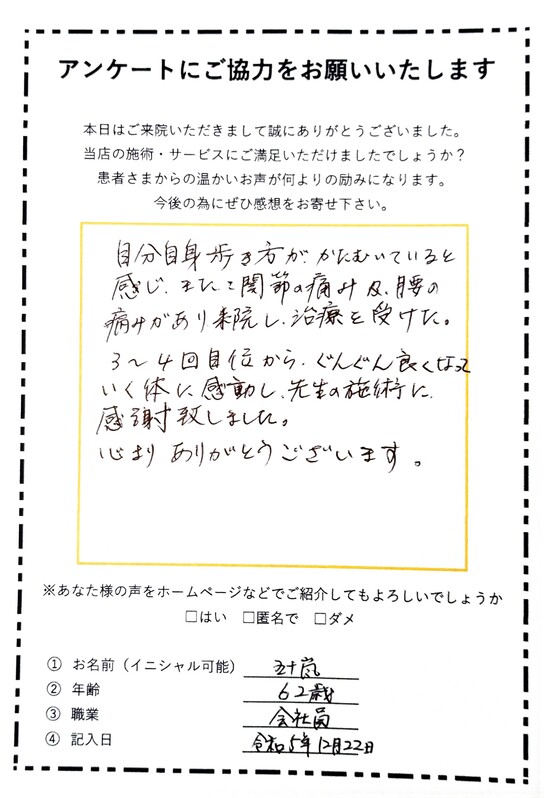 アンケートにご協力をお願いいたします
本日はご来院いただきまして誠にありがとうございました。
当店の施術・サービスにご満足いただけましたでしょうか?
患者さまからの温かいお声が何よりの励みになります。
今後の為にぜひ感想をお寄せ下さい。
自分自身歩き方が、かたむいていると
感じ、またこ関節の痛み及、腰の
痛みがあり来院し、治療を受けた。
3〜4回目位から、ぐんぐん良くなって
いく体に感動し、先生の施術に
感謝致しました。
心より ありがとうございます。
※あなた様の声をホームページなどでご紹介してもよろしいでしょうか
□はい □匿名で □ダメ
① お名前(イニシャル可能) 五十嵐
② 年齢 62歳
③ 職業 会社員
④ 記入日 令和5年12月22日